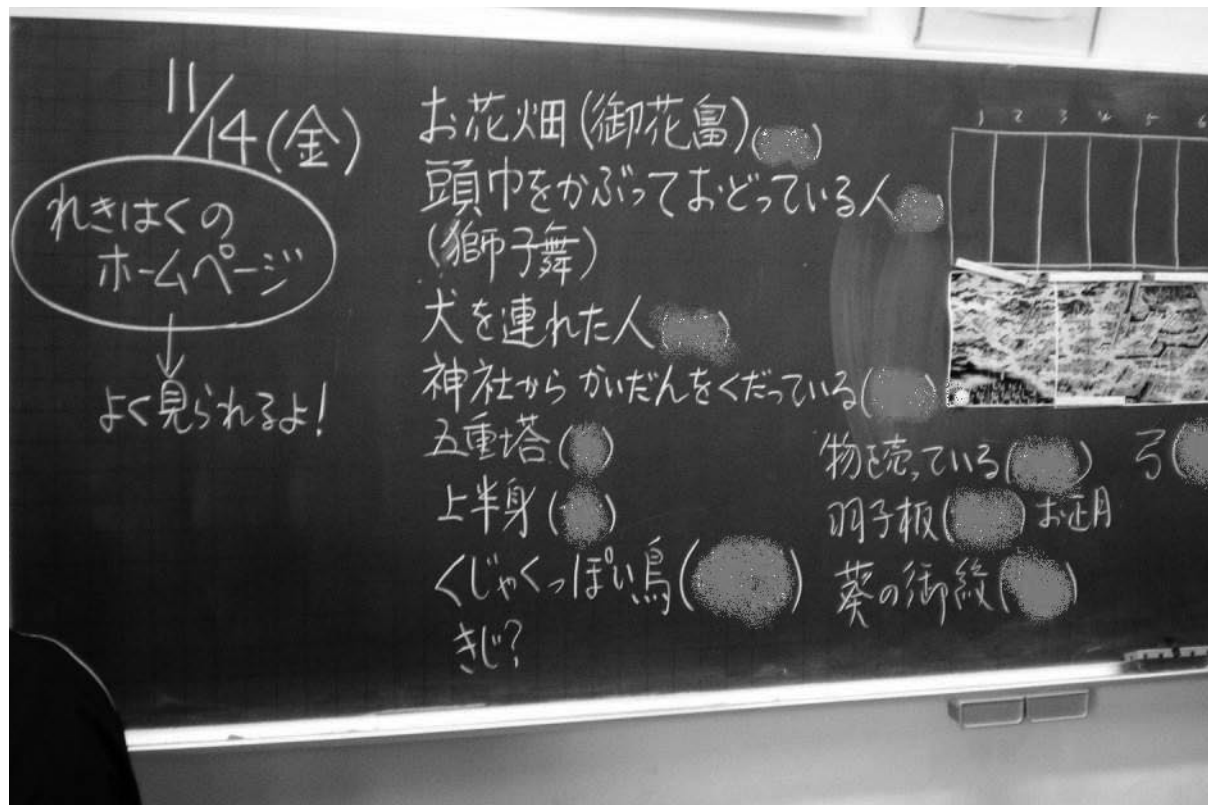 11/14(金)
れきはくの
ホームページ
よく見られるよ!
お花畑(御花畠)( )
頭巾をかぶっておどっている人
(獅子舞)
犬を連れた人
神社からかいだんをくだっている( )
五重塔( )
上半身( )
くじゃくっぽい鳥( )
きじ?
1 2 3 4 5 6
物を売っている( ) 弓(
羽子板( )お正月
葵の御紋( )